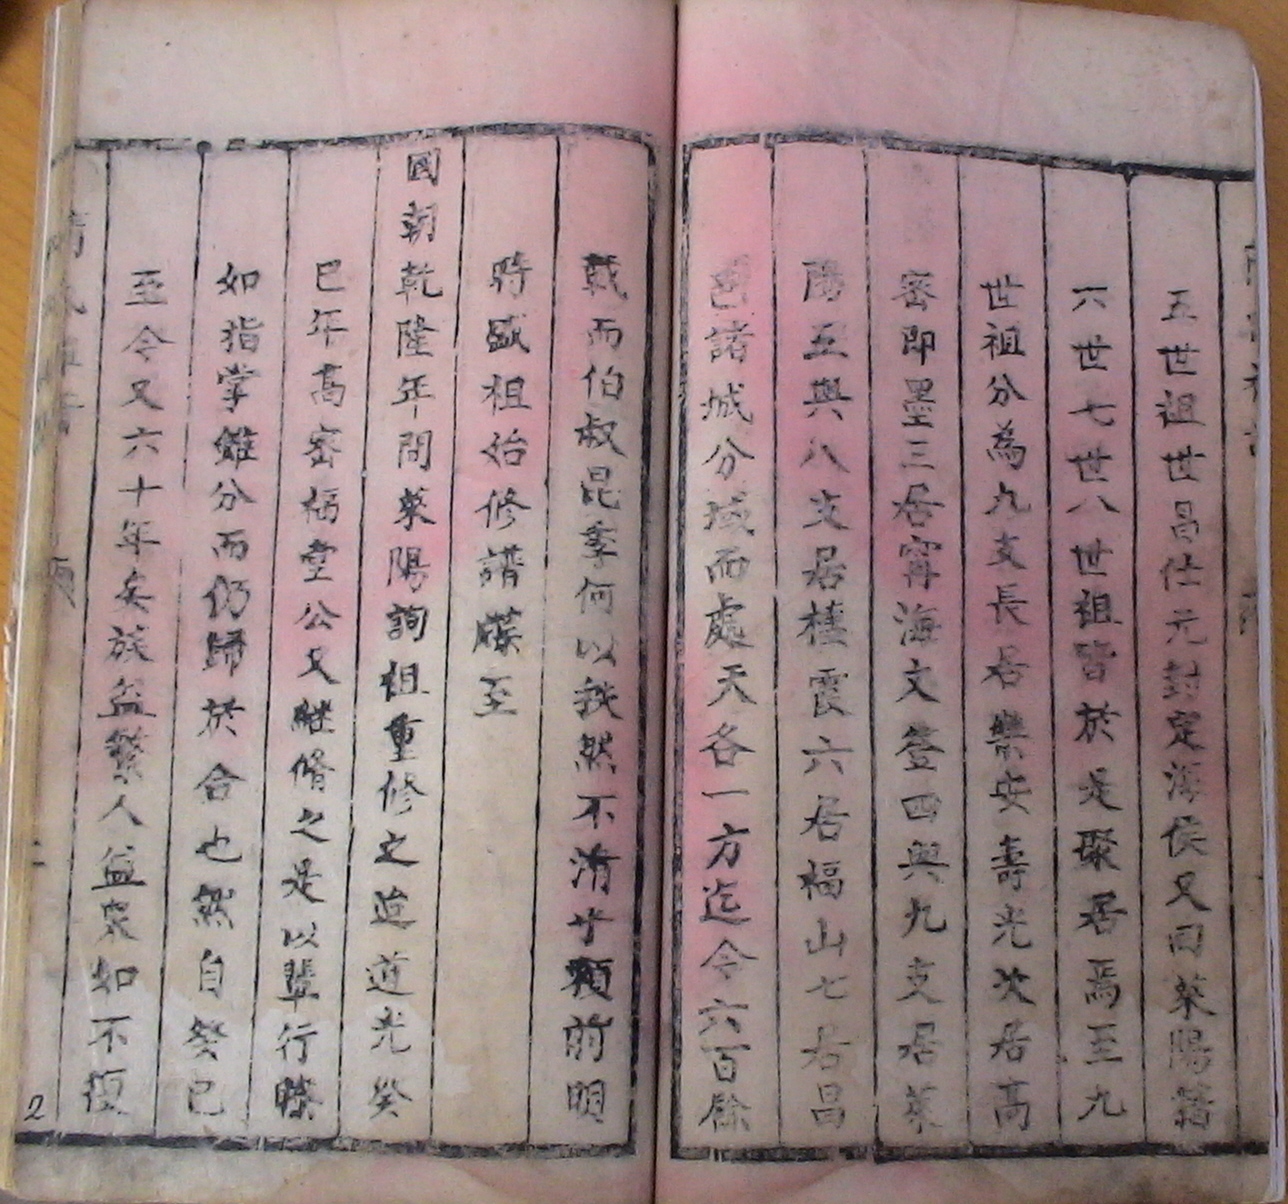 五世祖世昌仕元封定海侯又囘萊陽籍
六世七世八世祖皆於是聚居焉至九
世祖分為九支長居樂安壽光次居高
密即墨三居甯海文登四與九支居萊
陽五與八支居棲霞六居福山七居昌
邑諸城分域而處天各一方迄今六百餘
載而伯叔昆季何以秩然不淆乎賴前明
時盛祖始修譜牒至
國朝乾隆年間萊陽詢祖重修之迨道光癸
巳年高密福堂公又継脩之是以輩行瞭
如指掌雖分而仍歸於合也然自癸巳
至今又六十年矣族益繁人益衆如不須
2